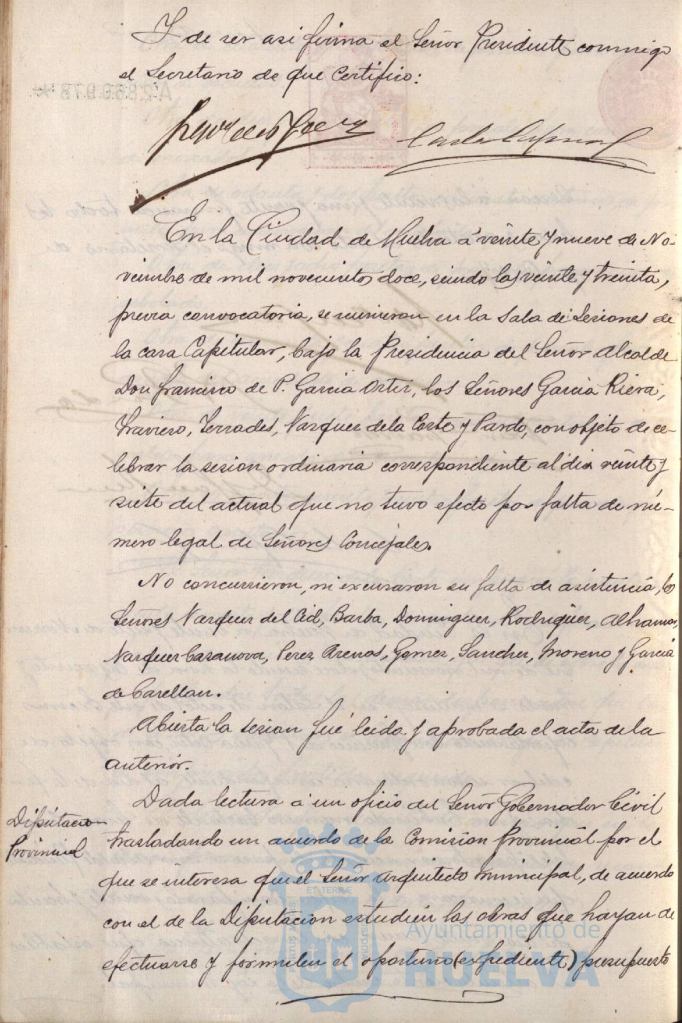 Y de ser asi firma el Señor Presidente conmigo
el Secretario de que certifico:
En la Ciudad de Huelva á veinte y nueve de No-
viembre de mil novecientos doce, siendo las veinte y treinta,
previa convocatoria, se reunieron en la Sala de Sesiones de
la casa Capitular, bajo la Presidencia del Señor Alcalde
Don Francisco de P. Garcia Ortiz, los Señores Garcia Riera,
Travieso, Terrades, Vazquez de la Corte y Pardo, con objeto de ce-
lebrar la sesion ordinaria correspondiente al dia veinte y
siete del actual que no tuvo efecto por falta de nú-
mero legal de Señores Concejales.
No concurrieron, ni excusaron su falta de asistencia, los
Señores Vazquez del Cid, Barba, Dominguez, Rodriguez, Alhamar,
Vazquez Casanova, Perez, Arenas, Gomez, Sanchez, Moreno y Garcia
de Carellan.
Abierta la sesion fué leida y aprobada el acta de la
anterior.
Diputacion
Provincial
Dada lectura á un oficio del Señor Gobernador Civil
trasladando un acuerdo de la Comision Provincial por el
que se interesa que el Señor Arquitecto municipal, de acuerdo
con el de la Diputacion estudien las obras que hayan de
efectuarse y formulen el oportuno (expediente) presupuesto
Ayuntamiento de
HUELVA